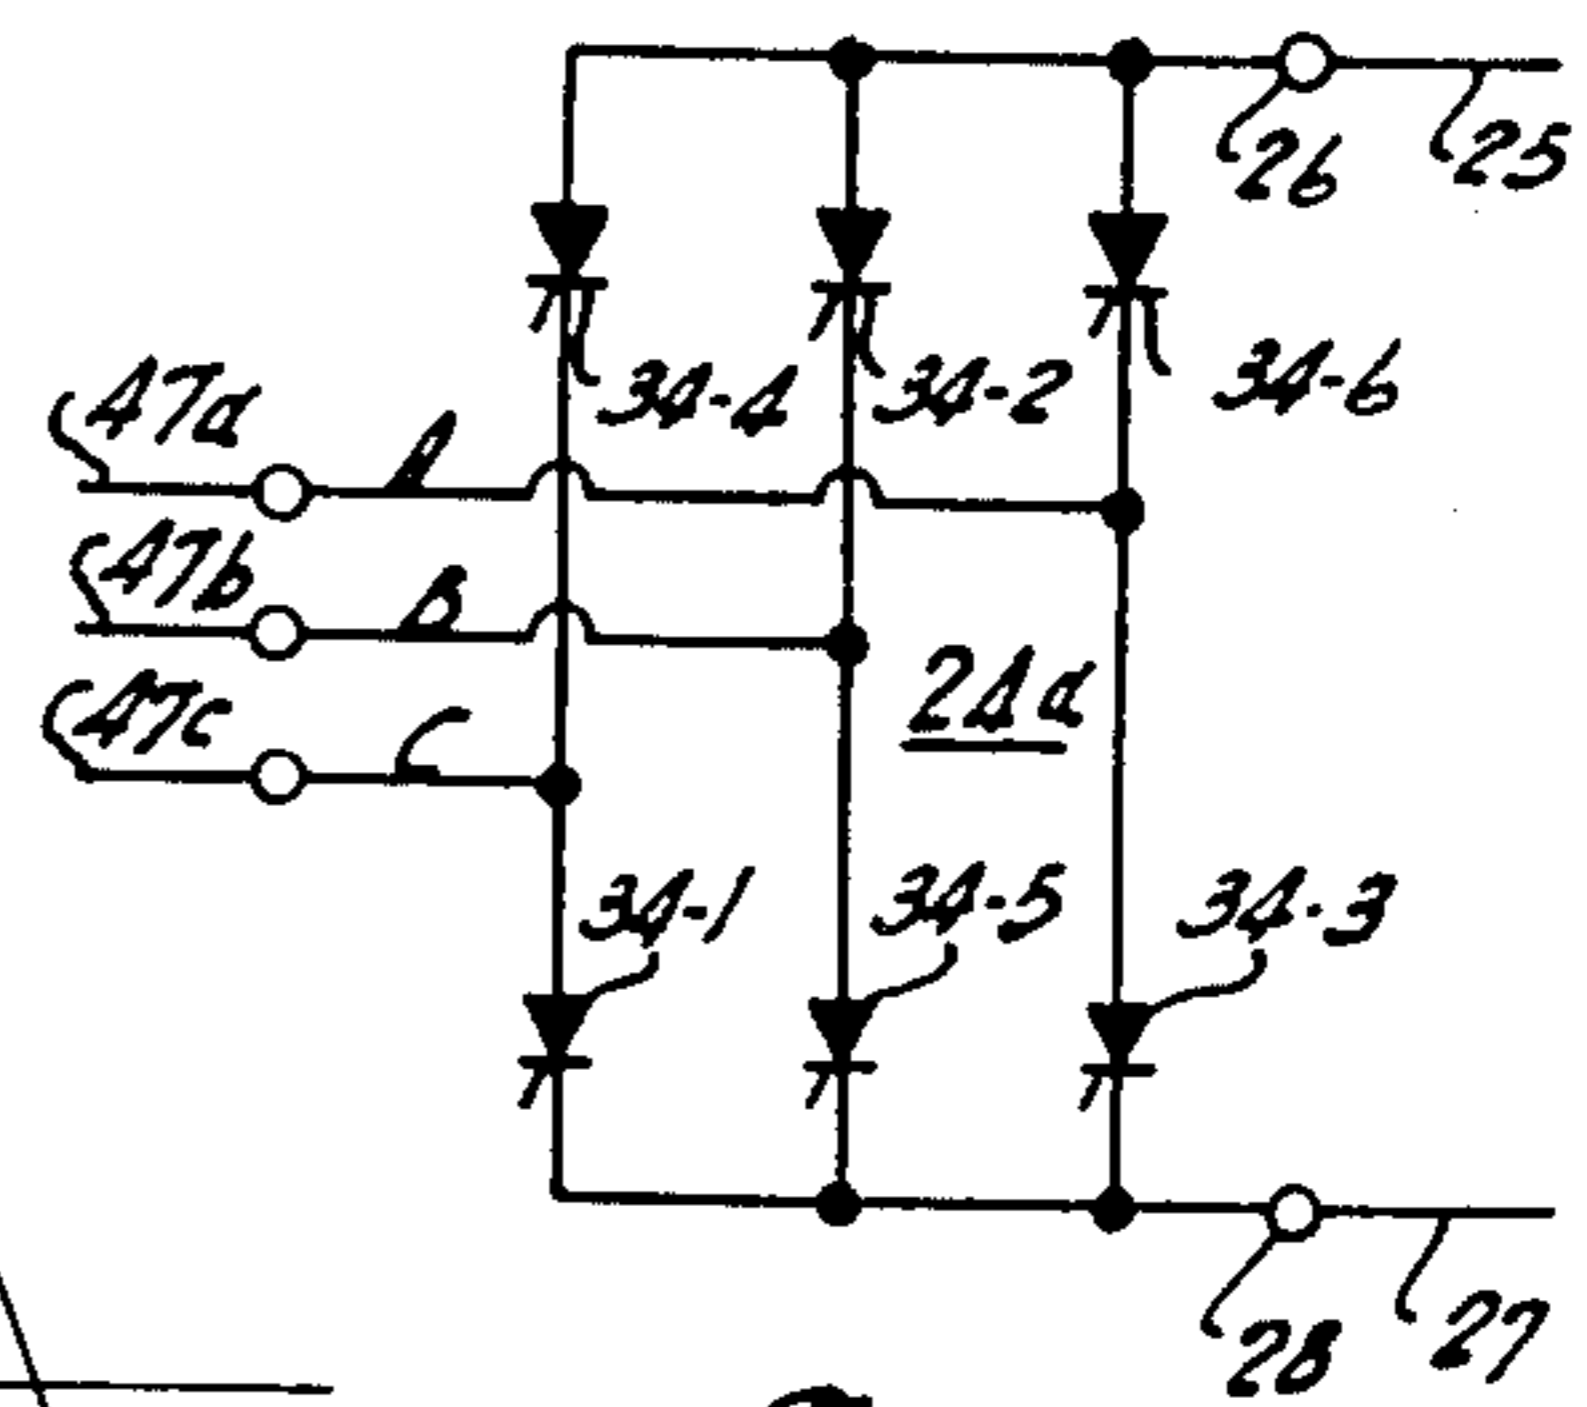 26
25
34-4
34-2
34-6
47a
A
47b
B
47c
C
24a
34-1
34-5
34-3
28
27